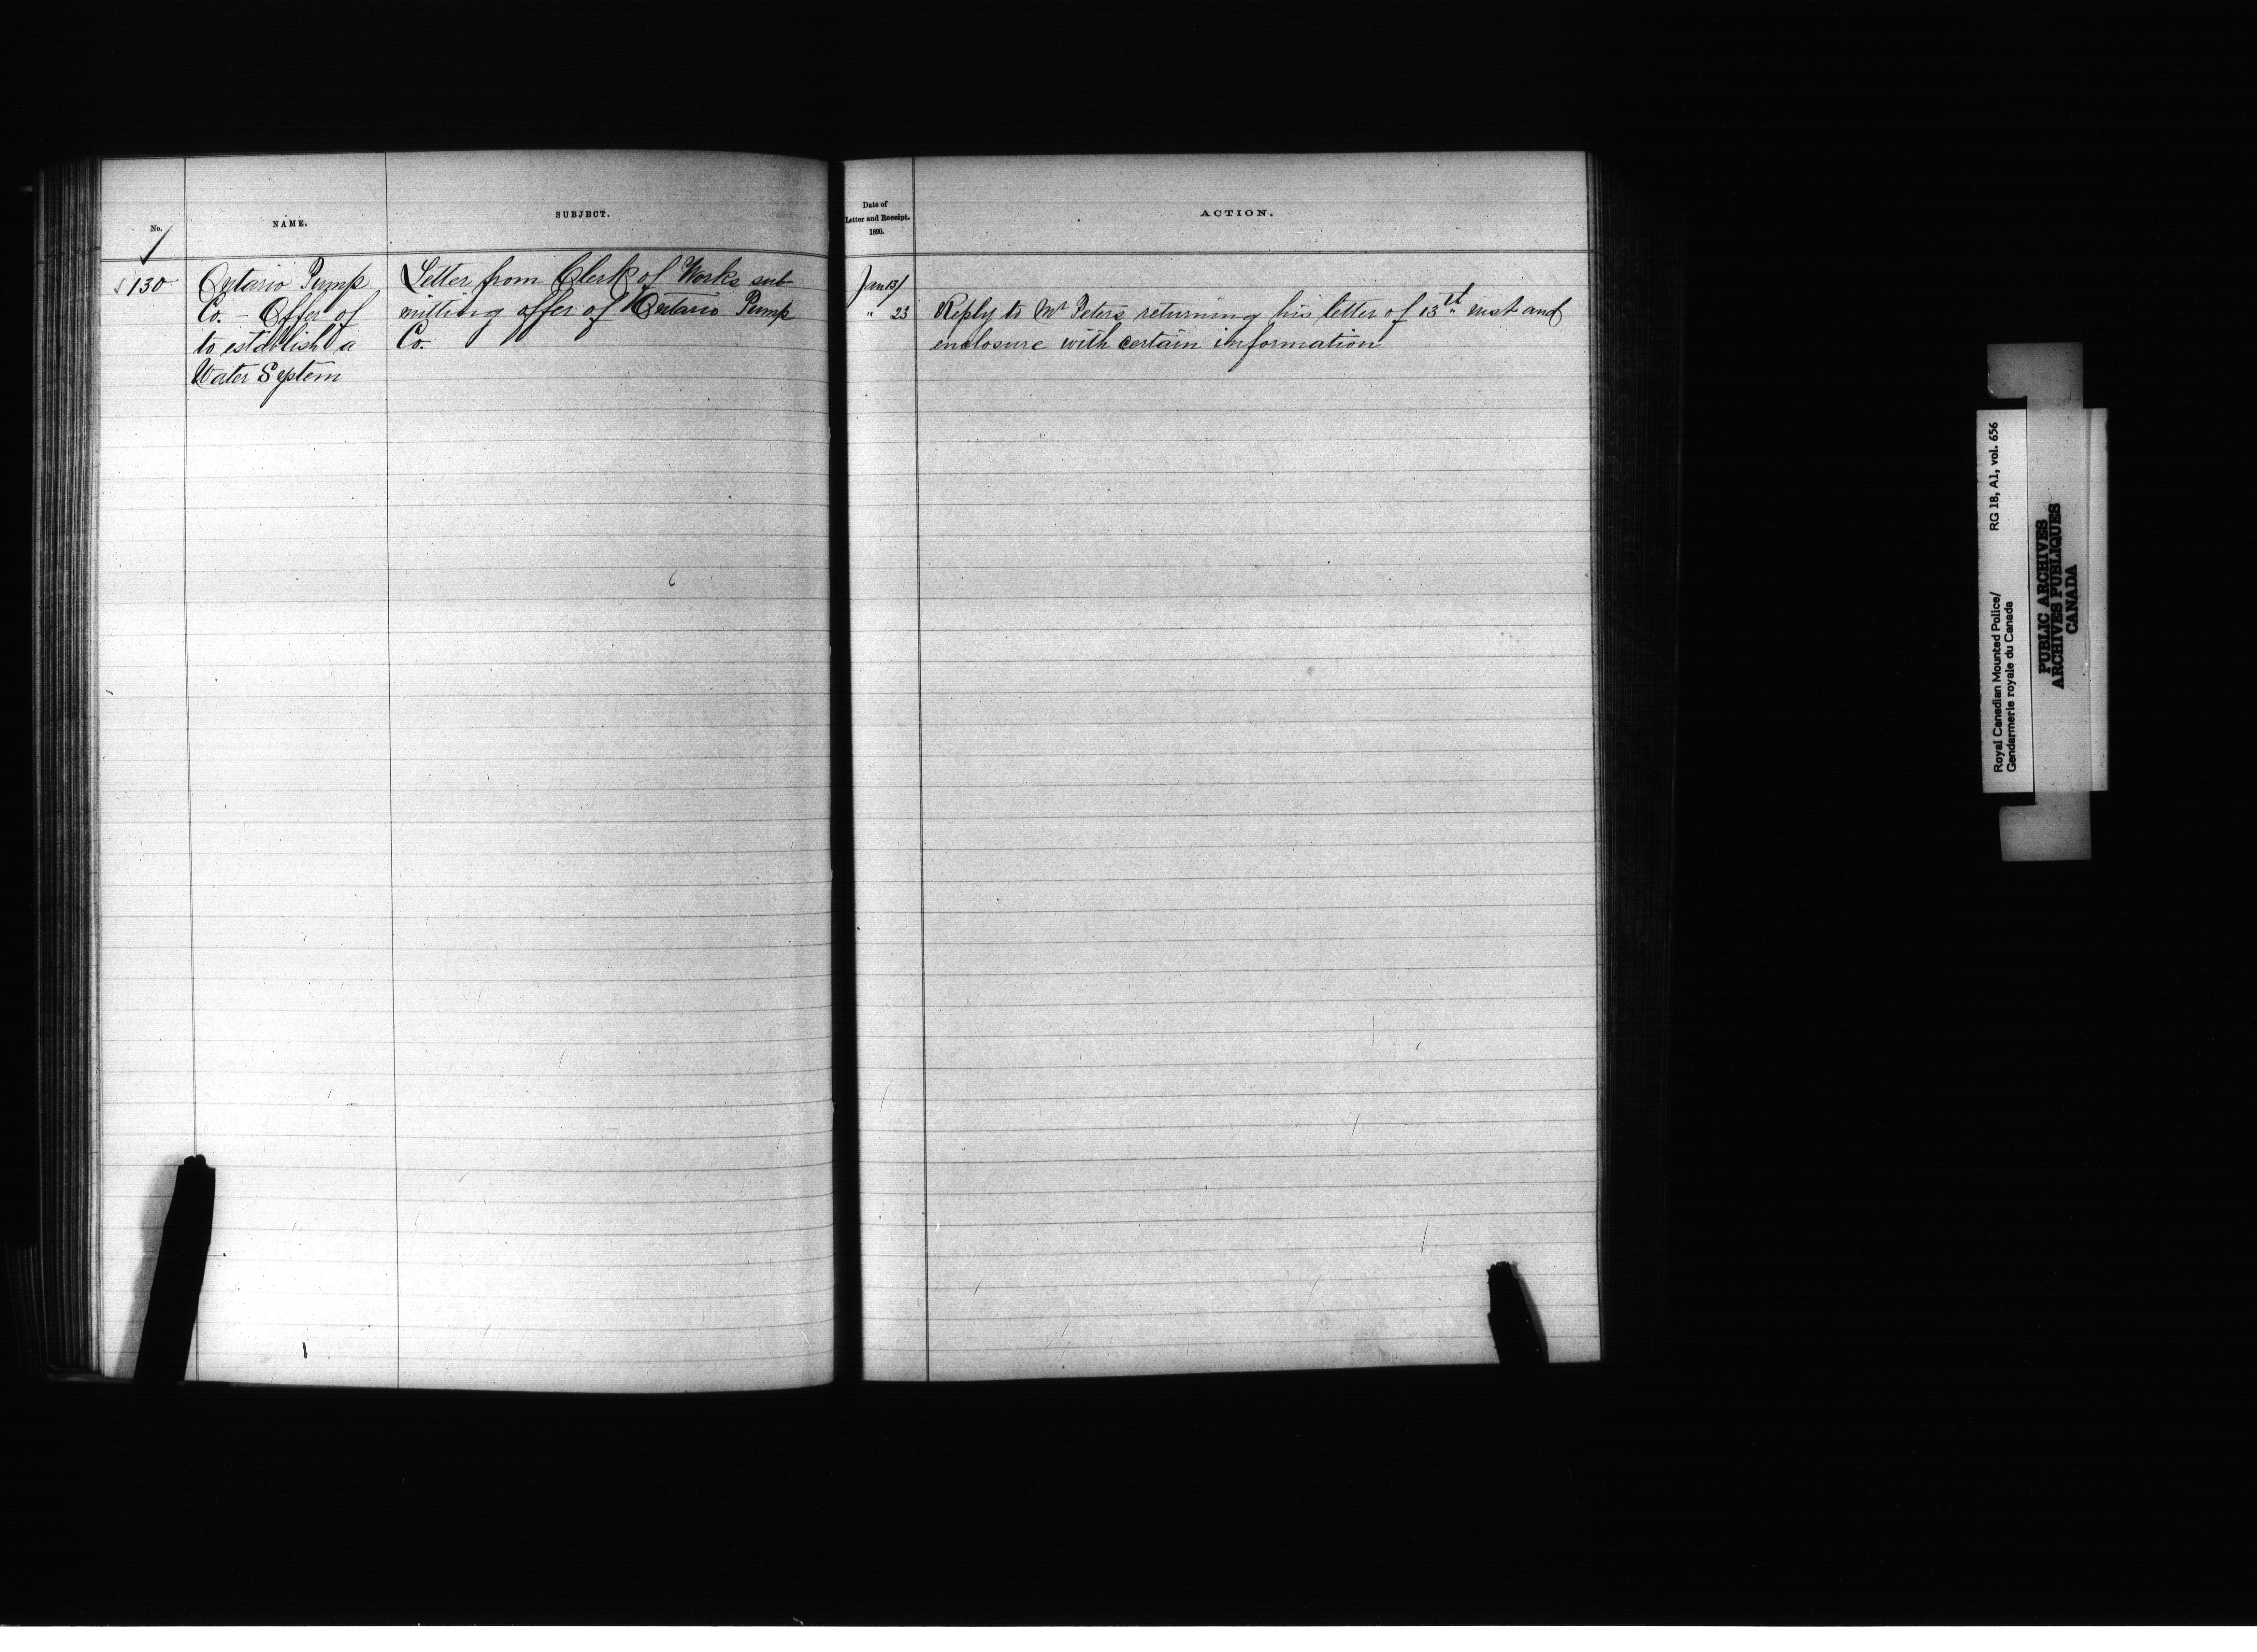 No.
NAME.
SUBJECT.
130
Ontario Pump
Co. – Offer of
to establish a
Water System
Letter from Clerk of Works sub-
mitting offer of Ontario Pump
Co.
Date of
Letter and Receipt.
1890.
ACTION.
Jan 13/
" 23
Reply to Mr Peters returning his letter of 13th inst and
enclosure with certain information
Royal Canadian Mounted Police/ RG 18, A1, vol. 656
Gendarmerie royale du Canada
PUBLIC ARCHIVES
ARCHIVES PUBLIQUES
CANADA